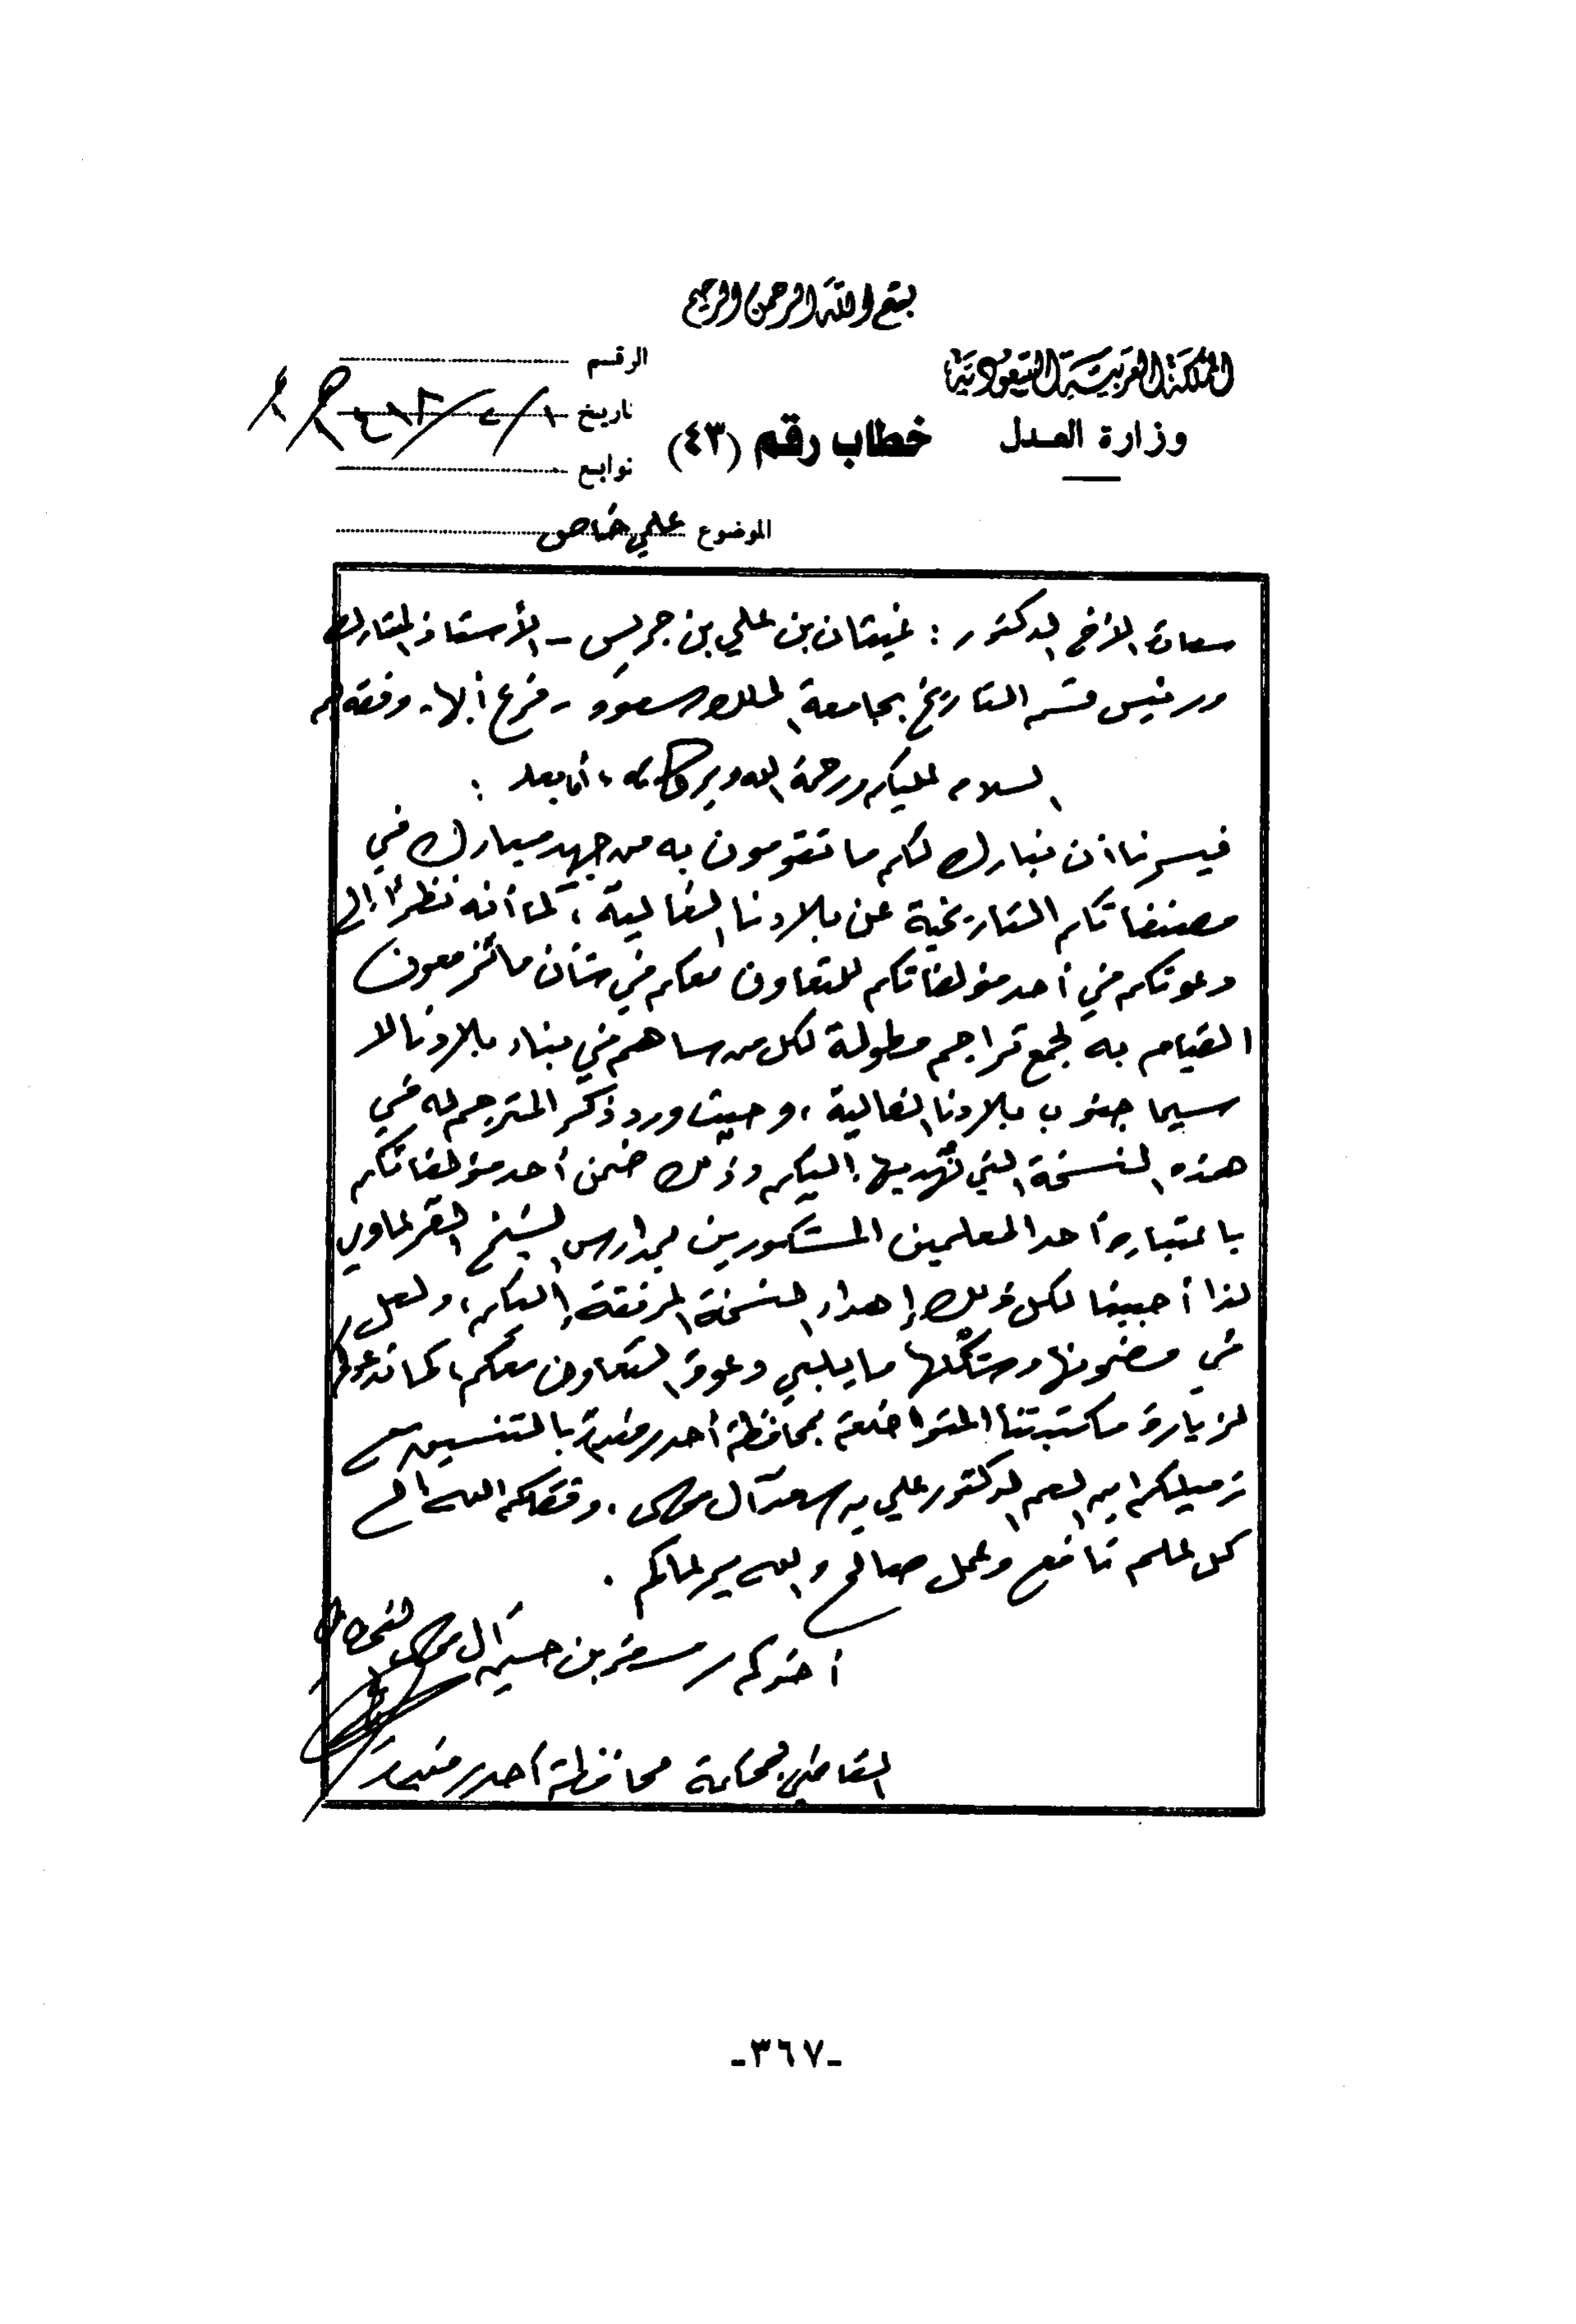 بسم الله الرحمن الرحيم
المملكة العربية السعودية
وزارة العدل
خطاب رقم (٤٣)
الرقم
تاريخ
توابع
الموضوع علمي خاص
سعادة الأخ الدكتور : غيثان بن علي بن جريس - الأستاذ المشارك
ورئيس قسم التاريخ بجامعة الملك سعود - فرع أبها - وفقه الله
السلام عليكم ورحمة الله وبركاته ، أما بعد :
فيسرنا أن نبارك لكم ما تقومون به من جهد مبارك في
مصنفاتكم التاريخية عن بلادنا الغالية ، كما أنه نظراً إلى
دعوتكم في أحد مؤلفاتكم للتعاون معكم في شأن ما تزمعون
القيام به لجمع تراجم مطولة لكل من ساهم في بناء بلادنا لا
سيما جنوب بلادنا الغالية ، وحيث ورد ذكر المترجم له في
هذه النسخة التي نهديها إليكم وذلك ضمن أحد مؤلفاتكم
باعتباره أحد المعلمين المشكورين بمدارس الشيخ القرعاوي
لذا أحببنا لكل ذلك إهداء النسخة المرفقة إليكم ، ولعل
في مضمونها وشكلها ما يلبي دعوة التعاون معكم ، كما ندعوكم
لزيارة مكتبتنا المتواضعة بمحافظة أحد رفيدة بالتنسيق مع
زميلكم ابن العم الدكتور علي بن سعد آل موسى ، وفقكم الله إلى
كل علم نافع وعمل صالح والله يرعاكم .
أخوكم / مسفر بن حسين آل موسى القحطاني
القاضي بمحكمة محافظة أحد رفيدة
-٣٦٧-